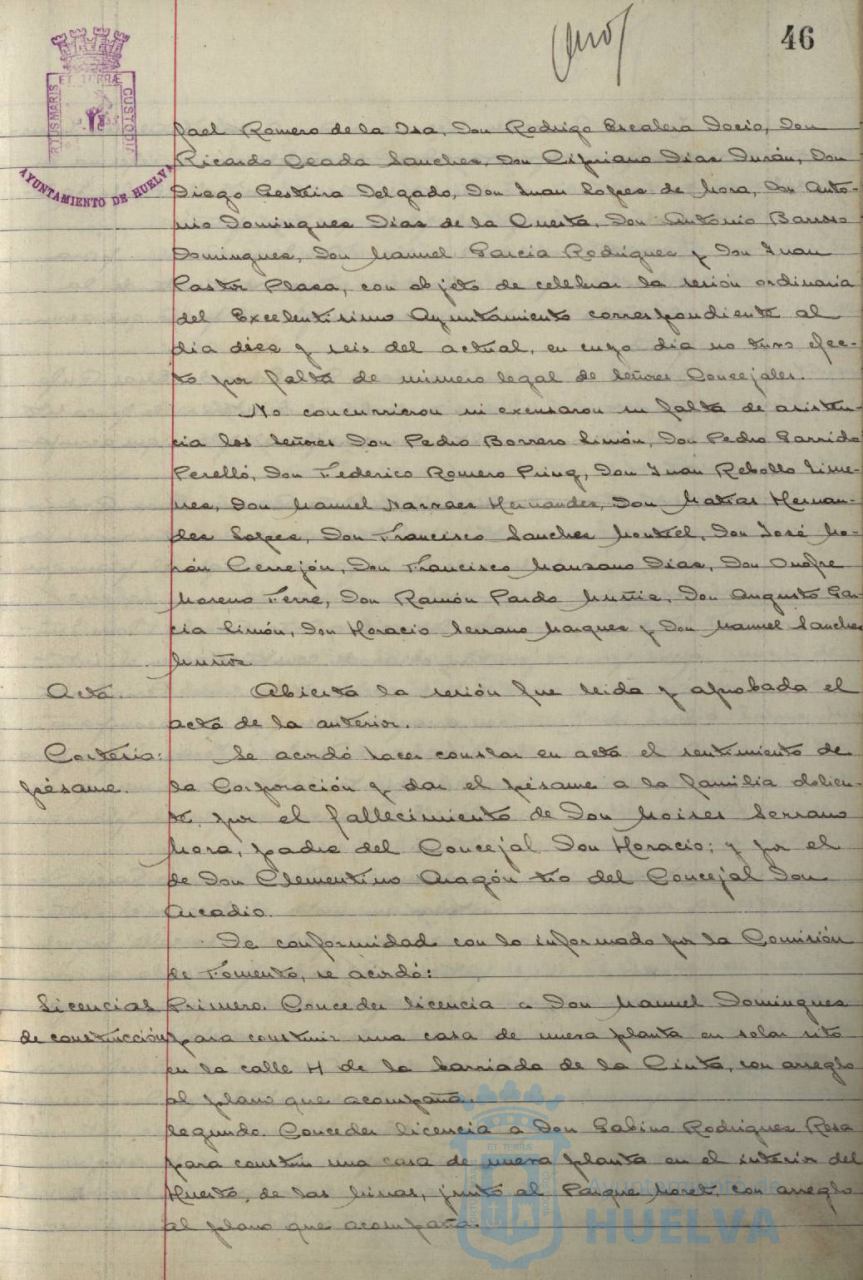 46
PORTUS MARIS ET TERRÆ CUSTODIA
AYUNTAMIENTO DE HUELVA
fael Romero de la Osa, Don Rodrigo Escalera Tocio, Don
Ricardo Ceada Sanchez, Don Cipriano Dias Durán, Don
Diego Gesteira Delgado, Don Juan Lopez de Mora, Don Anto-
nio Dominguez Dias de la Cuesta, Don Antonio Barroso
Dominguez, Don Manuel Garcia Rodriguez y Don Juan
Pastor Plaza, con objeto de celebrar la sesión ordinaria
del Excelentisimo Ayuntamiento correspondiente al
dia diez y seis del actual, en cuyo dia no tuvo efec-
to por falta de número legal de Señores Concejales.
No concurrieron ni excusaron su falta de asisten-
cia los Señores Don Pedro Borrero Limón, Don Pedro Garrido
Perelló, Don Federico Romero Pring, Don Juan Rebollo Jime-
nez, Don Manuel Narvaez Hernandez, Don Matias Hernan-
dez Lopez, Don Francisco Sanchez Montiel, Don José Mo-
rón Cerrejón, Don Francisco Manzano Dias, Don Onofre
Moreno Ferre, Don Ramón Pardo Muñiz, Don Augusto Gar-
cia Limón, Don Horacio Serrano Marquez y Don Manuel Sanchez
Muñoz.
Acta. Abierta la sesión fue leida y aprobada el
acta de la anterior.
Cortesia: Se acordó hacer constar en acta el sentimiento de
pésame. la Corporación y dar el pésame a la familia dolien-
te, por el fallecimiento de Don Moises Serrano
Mora, padre del Concejal Don Horacio; y por el
de Don Clementino Aragón tio del Concejal Don
Arcadio.
De conformidad con lo informado por la Comisión
de Fomento, se acordó:
Licencias Primero. Conceder licencia a Don Manuel Dominguez
de construcción para construir una casa de nueva planta en solar sito
en la calle H de la barriada de la Cinta, con arreglo
al plano que acompaña.
Segundo. Conceder licencia a Don Gabino Rodriguez Rosa
para construir una casa de nueva planta en el interior del
Huerto, de las Minas, junto al Parque Moret, con arreglo
al plano que acompaña.
Ayuntamiento de
HUELVA